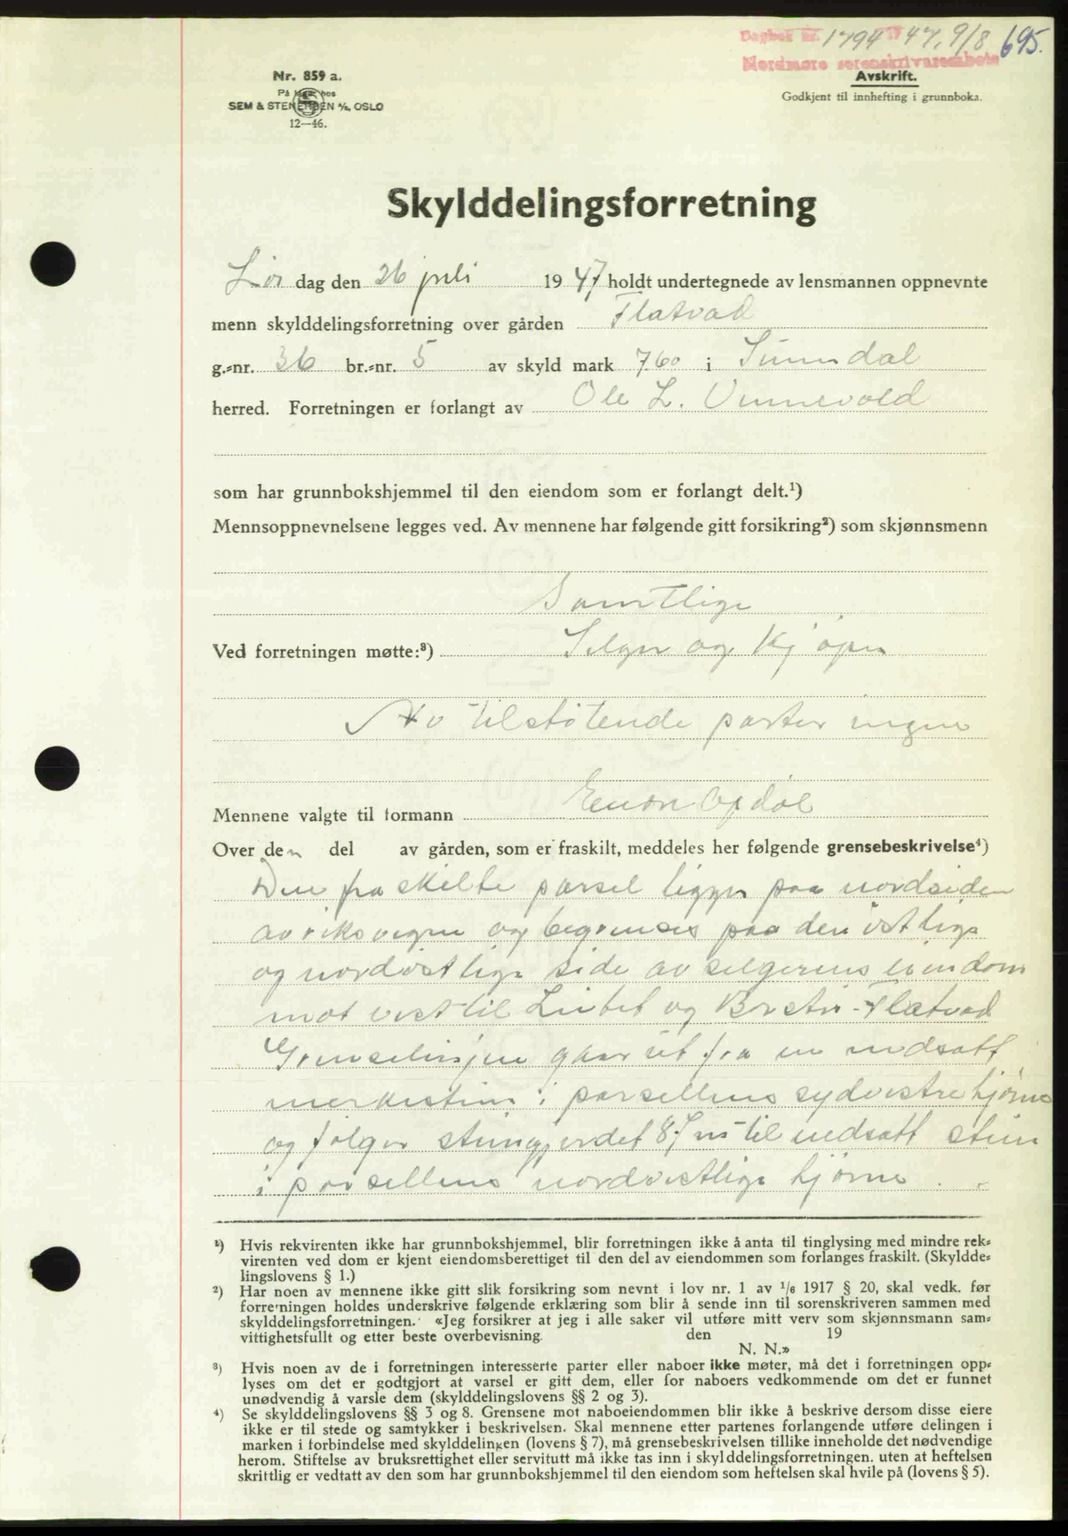 Dagbok nr. 1794 19 47, 9/8 695.
Nordmøre sorenskrivarembete
Nr. 859 a.
På lager hos
SEM & STENERSEN A/S, OSLO
12—46.
Avskrift.
Godkjent til innhefting i grunnboka.
Skylddelingsforretning
Lør dag den 26 juli 1947 holdt undertegnede av lensmannen oppnevnte
menn skylddelingsforretning over gården Flatvad
g.-nr. 36 br.-nr. 5 av skyld mark 7.60 i Sunndal
herred. Forretningen er forlangt av Ole L.
som har grunnbokshjemmel til den eiendom som er forlangt delt.¹)
Mennsoppnevnelsene legges ved. Av mennene har følgende gitt forsikring²) som skjønnsmenn
Samtlige
Ved forretningen møtte:³) Selger og Kjøper
Av tilstøtende parter ingen
Mennene valgte til formann Einar Opdøl
Over den del av gården, som er fraskilt, meddeles her følgende grensebeskrivelse⁴)
Den fraskilte parsel ligger paa nordsiden
av riksvegen og begrenses paa den østlige
og nordøstlige side av selgerens eiendom
mot vest til og Flatvad
Grenselinjen gaar ut fra en nedsatt
merkestein i parsellens sydvestre hjørne
og følger steingjerdet til nedsatt stein
i parsellens nordvestlige hjørne.
¹) Hvis rekvirenten ikke har grunnbokshjemmel, blir forretningen ikke å anta til tinglysing med mindre rek-
virenten ved dom er kjent eiendomsberettiget til den del av eiendommen som forlanges fraskilt. (Skyldde-
lingslovens § 1.)
²) Har noen av mennene ikke gitt slik forsikring som nevnt i lov nr. 1 av 1/6 1917 § 20, skal vedk. før
forretningen holdes underskrive følgende erklæring som blir å sende inn til sorenskriveren sammen med
skylddelingsforretningen. «Jeg forsikrer at jeg i alle saker vil utføre mitt verv som skjønnsmann sam-
vittighetsfullt og etter beste overbevisning. den 19
N. N.»
³) Hvis noen av de i forretningen interesserte parter eller naboer ikke møter, må det i forretningen opp-
lyses om det er godtgjort at varsel er gitt dem, eller for naboers vedkommende om det er funnet
unødvendig å varsle dem (skylddelingslovens §§ 2 og 3).
⁴) Se skylddelingslovens §§ 3 og 8. Grensene mot naboeiendommen blir ikke å beskrive dersom disse eiere
ikke er til stede og samtykker i beskrivelsen. Skal mennene etter partenes forlangende utføre delingen i
marken i forbindelse med skylddelingen (lovens § 7), må grensebeskrivelsen tillike inneholde det nødvendige
herom. Stiftelse av bruksrettighet eller servitutt må ikke tas inn i skylddelingsforretningen. uten at heftelsen
skrittlig er vedtatt av den som har grunnbokshjemmel til den eiendom som heftelsen skal hvile på (lovens § 5).